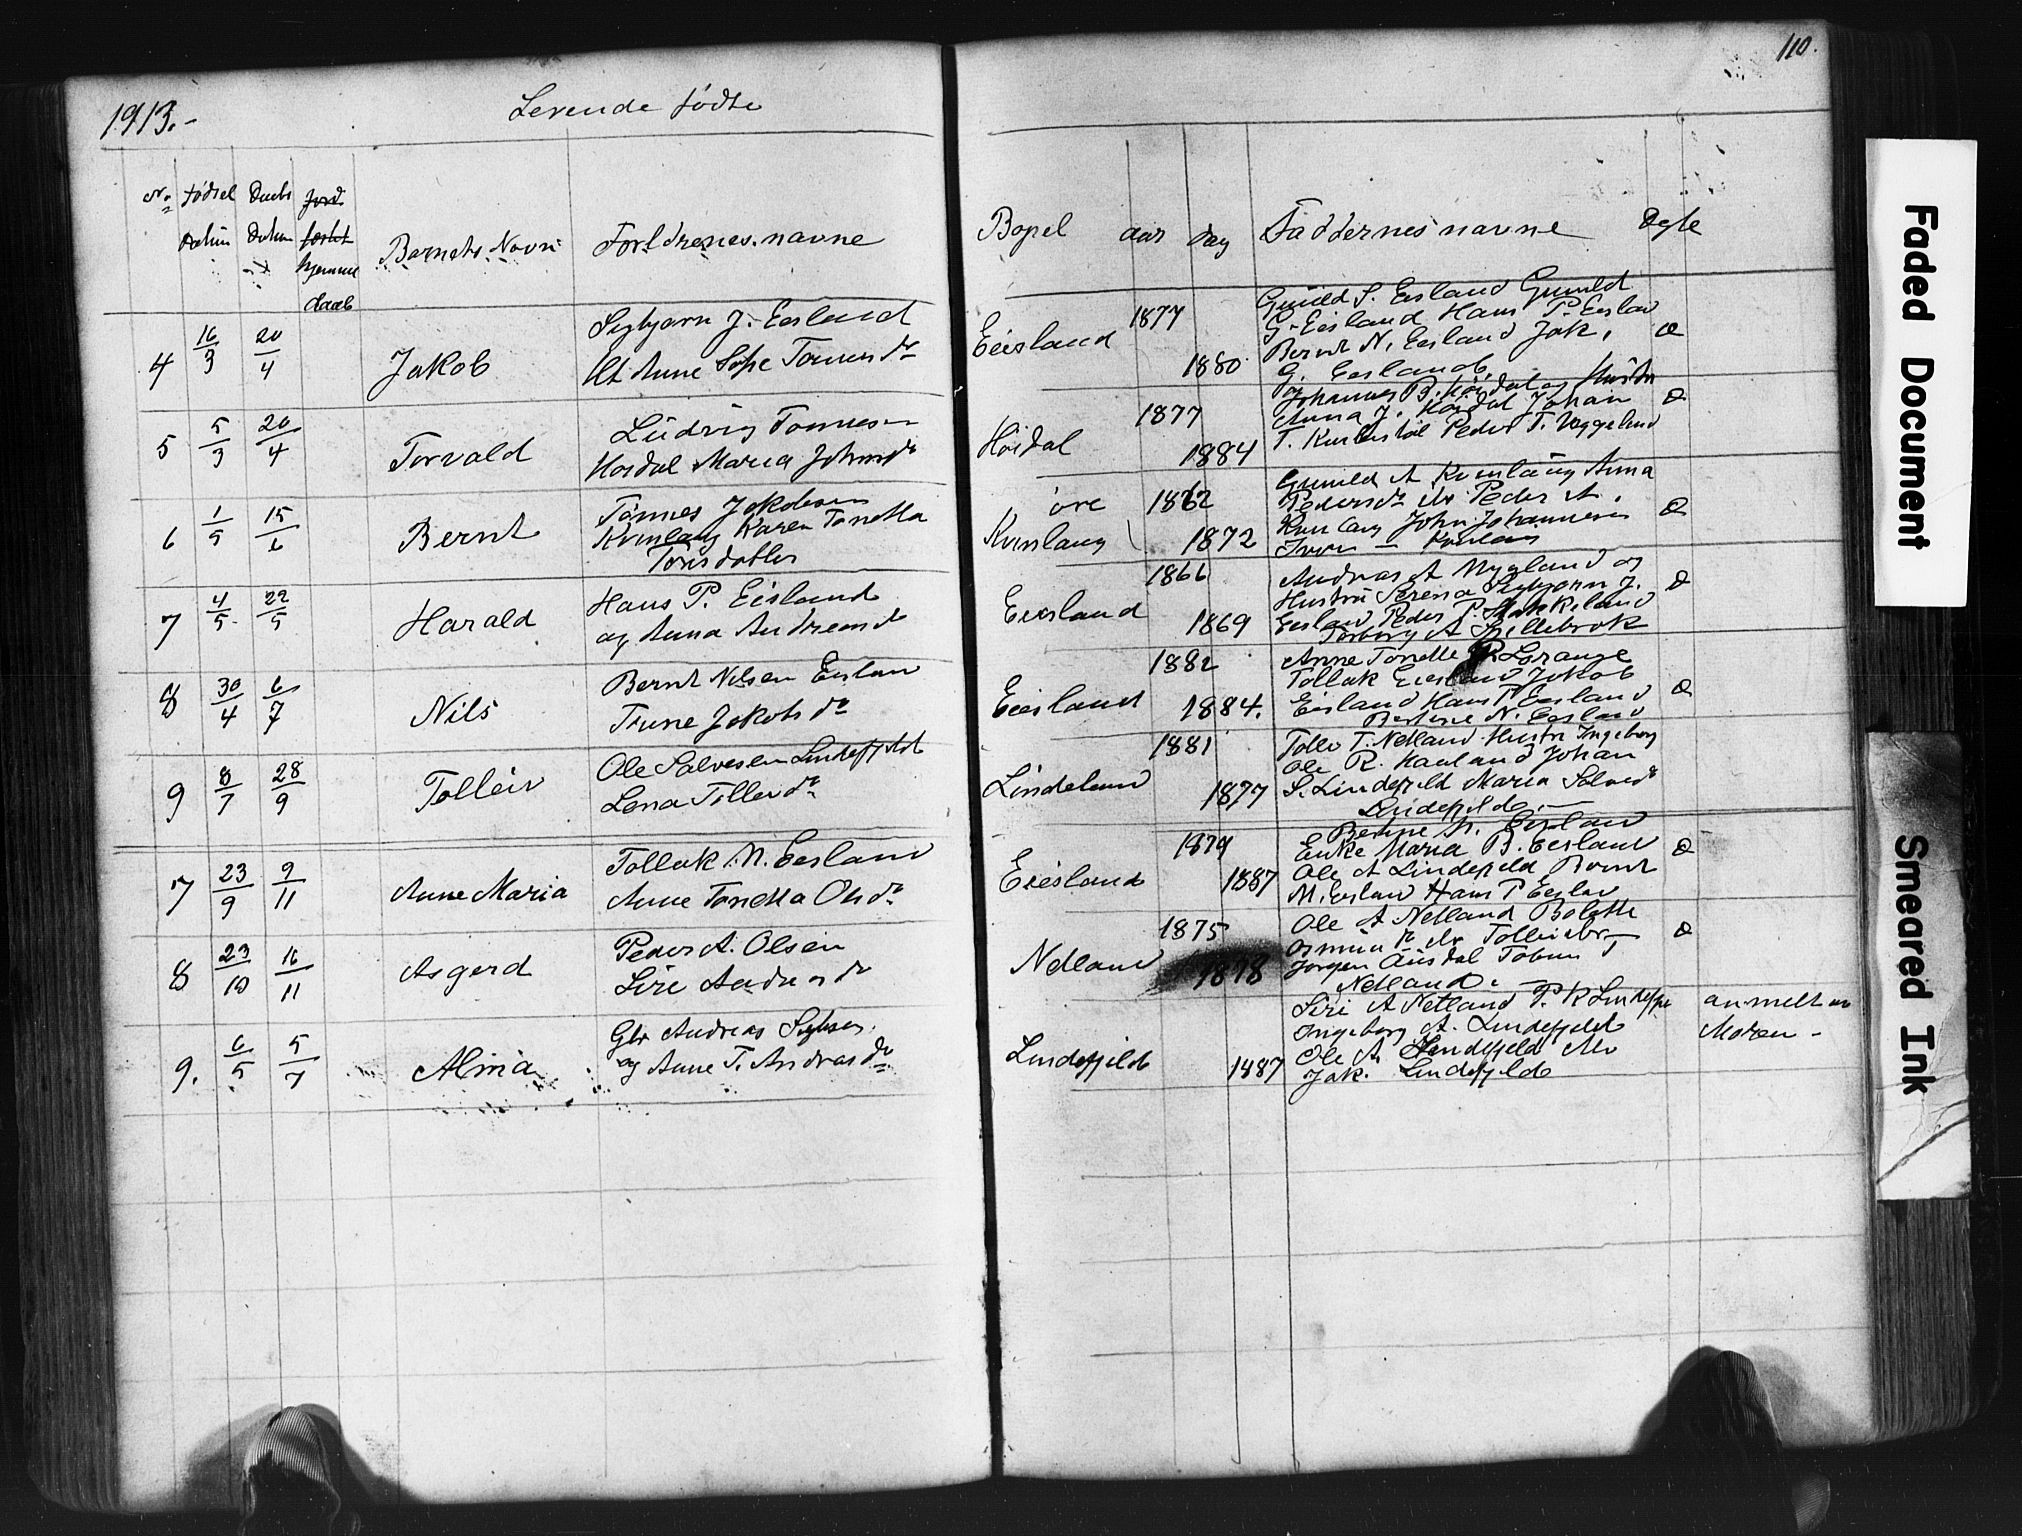 1913.-
Levende fødte
110.
No Fødsel Daabs Jord
Datum Datum festet
hjemme
daab
Barnets Navn Forldrenes navne
Bopel aar Dag Faddernes navne Døbt
4 16/3 20/4 Jakob
Sigbjørn J. Eesland
Anne Tønnes dr
Eiesland 1877
1880
Gunild S. Eesland Gunild
G. Eesland Hans P. Eeslan
Bernt N. Eesland Jak.
G. Eesland
5 5/3 20/4 Torvald
Ludvig Tønnesen
Høidal Maria Johns dr
Høidal 1877
1884
Johannes P. Høidal og Hustru
Anna J. Høidal Johan
T. Peder T.
6 1/5 15/6 Bernt
Tønnes Jakobsen
Kvinlaug Karen Tonetta
Tørisdatter
øvre
Kvinlaug 1862
1872
Gunild A Kvinlaug Anna
Pedersdr Peder A.
Kvinlaug John Johannesen
Kvinlaug
7 4/5 22/5 Harald
Hans P. Eisland
og Anna Andreasd
Eiesland 1866
1869
Andreas A Nygland og
Hustru Serena Sigbjørn J.
Eesland Peder P.
A Sellebrok
8 30/4 6/7 Nils
Bernt Nilsen Eeslan
Trine Jakobs dr
Eiesland 1882
1884.
Anne Tonette R. Lorange
Tollak Eiesland Jakob
Eisland Hans P Eesland
Bertine N. Eesland
9 8/7 28/9 Tolleiv
Ole Salvesen Lindefjeld
Lena Tollev dr
Lindeland 1881
1877
Tollv T. Netland Hustru Ingeborg
Ole R. Haaland Johan
S. Lindefjeld Maria Salvesdr
Lindefjeld
7 23/9 9/11 Anne Maria
Tollak N. Eesland
Anne Tonetta Ols dr
Eiesland 1879
1887
Bertine N. Eeslan
Enke Maria B. Eesland
Ole A Lindefjeld Bernt
N. Eeslan Hans P Eeslan
8 23/10 16/11 Asgerd
Peder A. Olsen
Siri Andreas dr
Netland 1875
1878
Ole A Netland Bolette
Jørgen Tobias T
Netland.
9. 6/5 5/7 Alma
Gbr Andreas
og Anne T. Andreas dr
Lindefjeld 1887
Siri A Netland P. K Lindefjel
Ingeborg A. Lindefjeld
Ole A Lindefjeld
Jak. Lindefjeld
anmelt av
Moren -
Faded Document
Smeared Ink